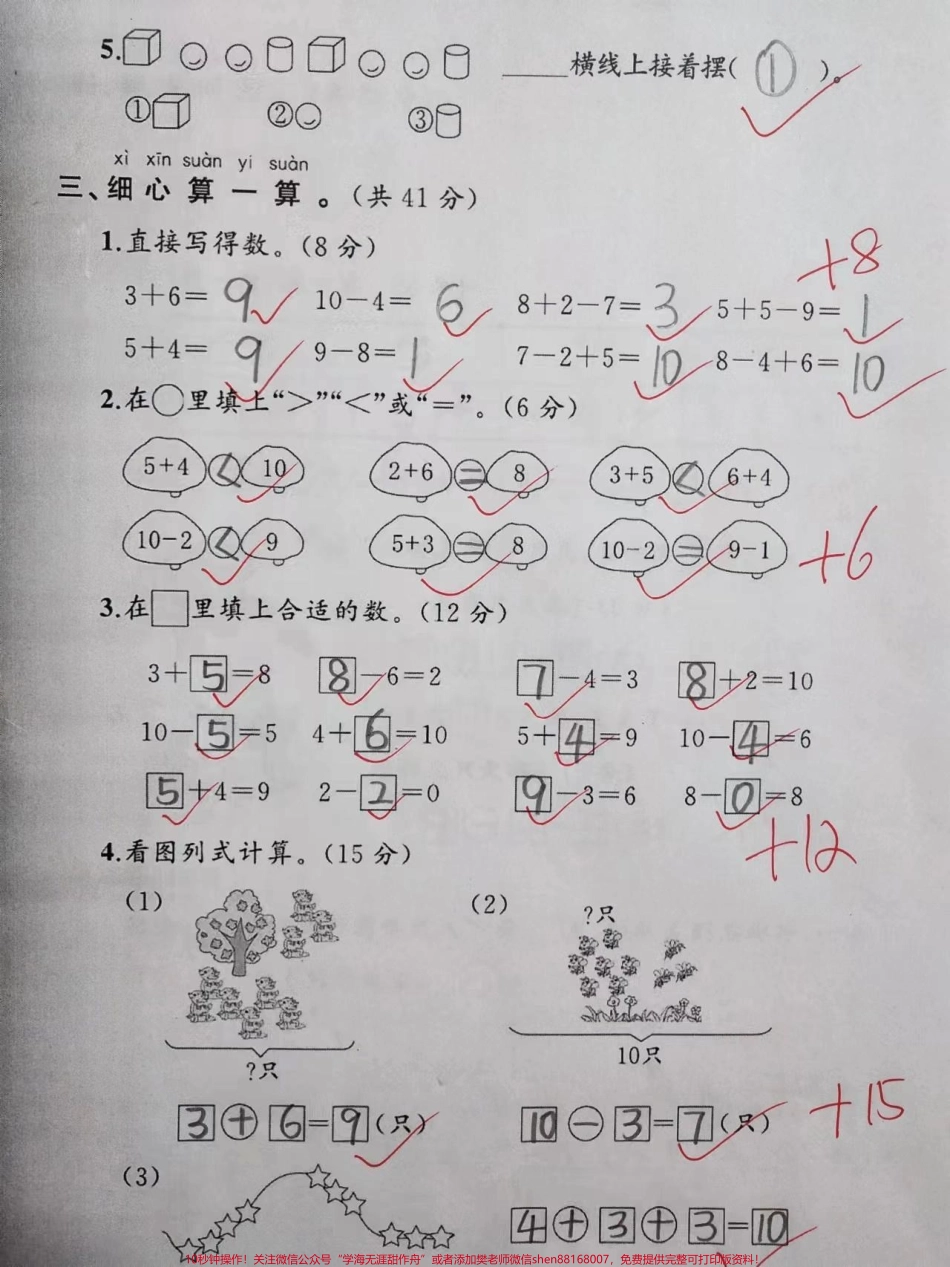 5. ____横线上接着摆( 1 )。
① ② ③
xì xīn suàn yi suàn
三、细心算一算。(共41分)
1.直接写得数。(8分)
+8
3+6= 9 10-4= 6 8+2-7= 3 5+5-9= 1
5+4= 9 9-8= 1 7-2+5= 10 8-4+6= 10
2.在○里填上“>”“<”或“=”。(6分)
5+4 < 10 2+6 = 8 3+5 < 6+4
10-2 < 9 5+3 = 8 10-2 = 9-1
+6
3.在□里填上合适的数。(12分)
3+5=8 8-6=2 7-4=3 8+2=10
10-5=5 4+6=10 5+4=9 10-4=6
5+4=9 2-2=0 9-3=6 8-0=8
+12
4.看图列式计算。(15分)
(1) (2)
?只
?只 10只
3+6=9(只) 10-3=7(只)
+15
(3)
4+3+3=10
10秒钟操作!关注微信公众号“学海无涯甜作舟”或者添加樊老师微信shen88168007,免费提供完整可打印版资料!